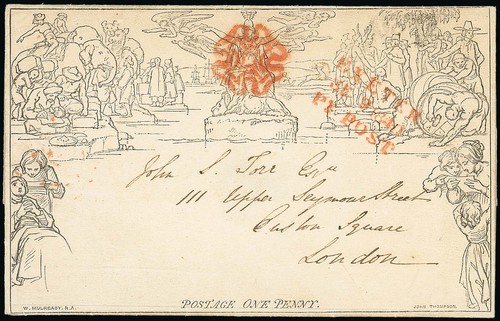 John S. Torr Esqr
111 Upper Seymour Street
Euston Square
London
POSTAGE ONE PENNY.
W. MULREADY, R.A.
JOHN THOMPSON.
PY POST